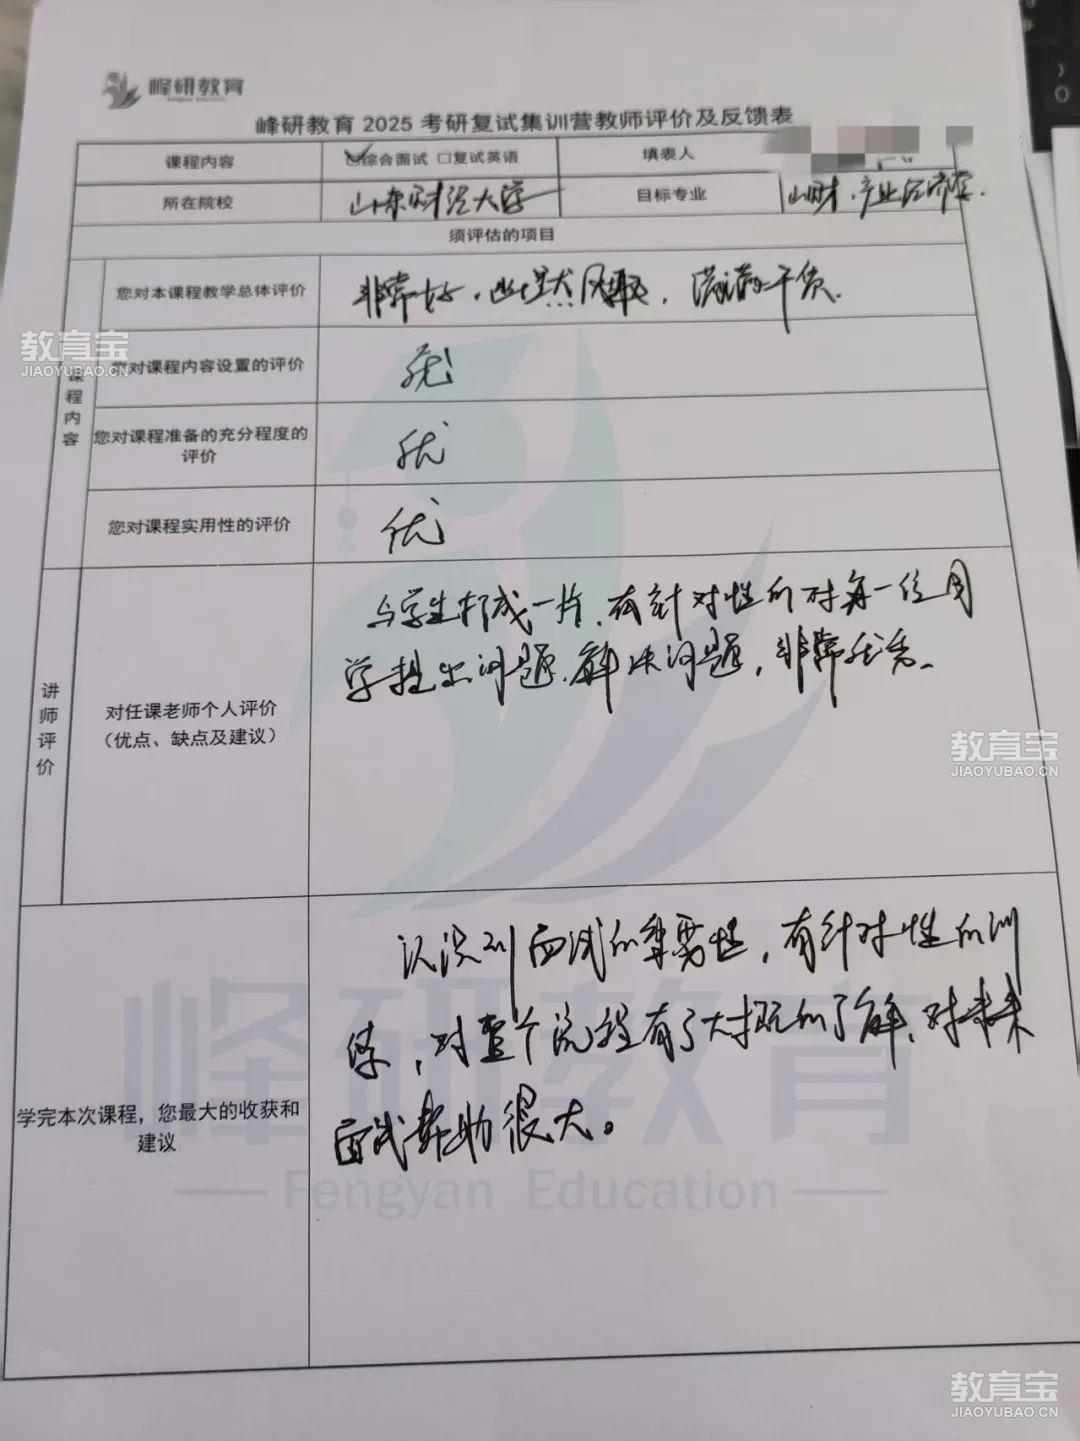 峰研教育
Fengyan Education
峰研教育 2025 考研复试集训营教师评价及反馈表
课程内容 ☑综合面试 □复试英语 填表人
所在院校 山东财经大学 目标专业 山财、产业经济学.
须评估的项目
课程内容
您对本课程教学总体评价 非常好，幽默风趣，满满干货.
您对课程内容设置的评价 优
您对课程准备的充分程度的
评价 优
您对课程实用性的评价 优
讲师评价
对任课老师个人评价
（优点、缺点及建议）
与学生打成一片，有针对性的对每一位同
学提出问题，解决问题，非常优秀.
学完本次课程，您最大的收获和
建议
认识到面试的重要性，有针对性的训
练，对整个流程有了大概的了解，对未来
面试帮助很大。
峰研教育
Fengyan Education
教育宝
JIAOYUBAO.CN
教育宝
JIAOYUBAO.CN
教育宝
JIAOYUBAO.CN